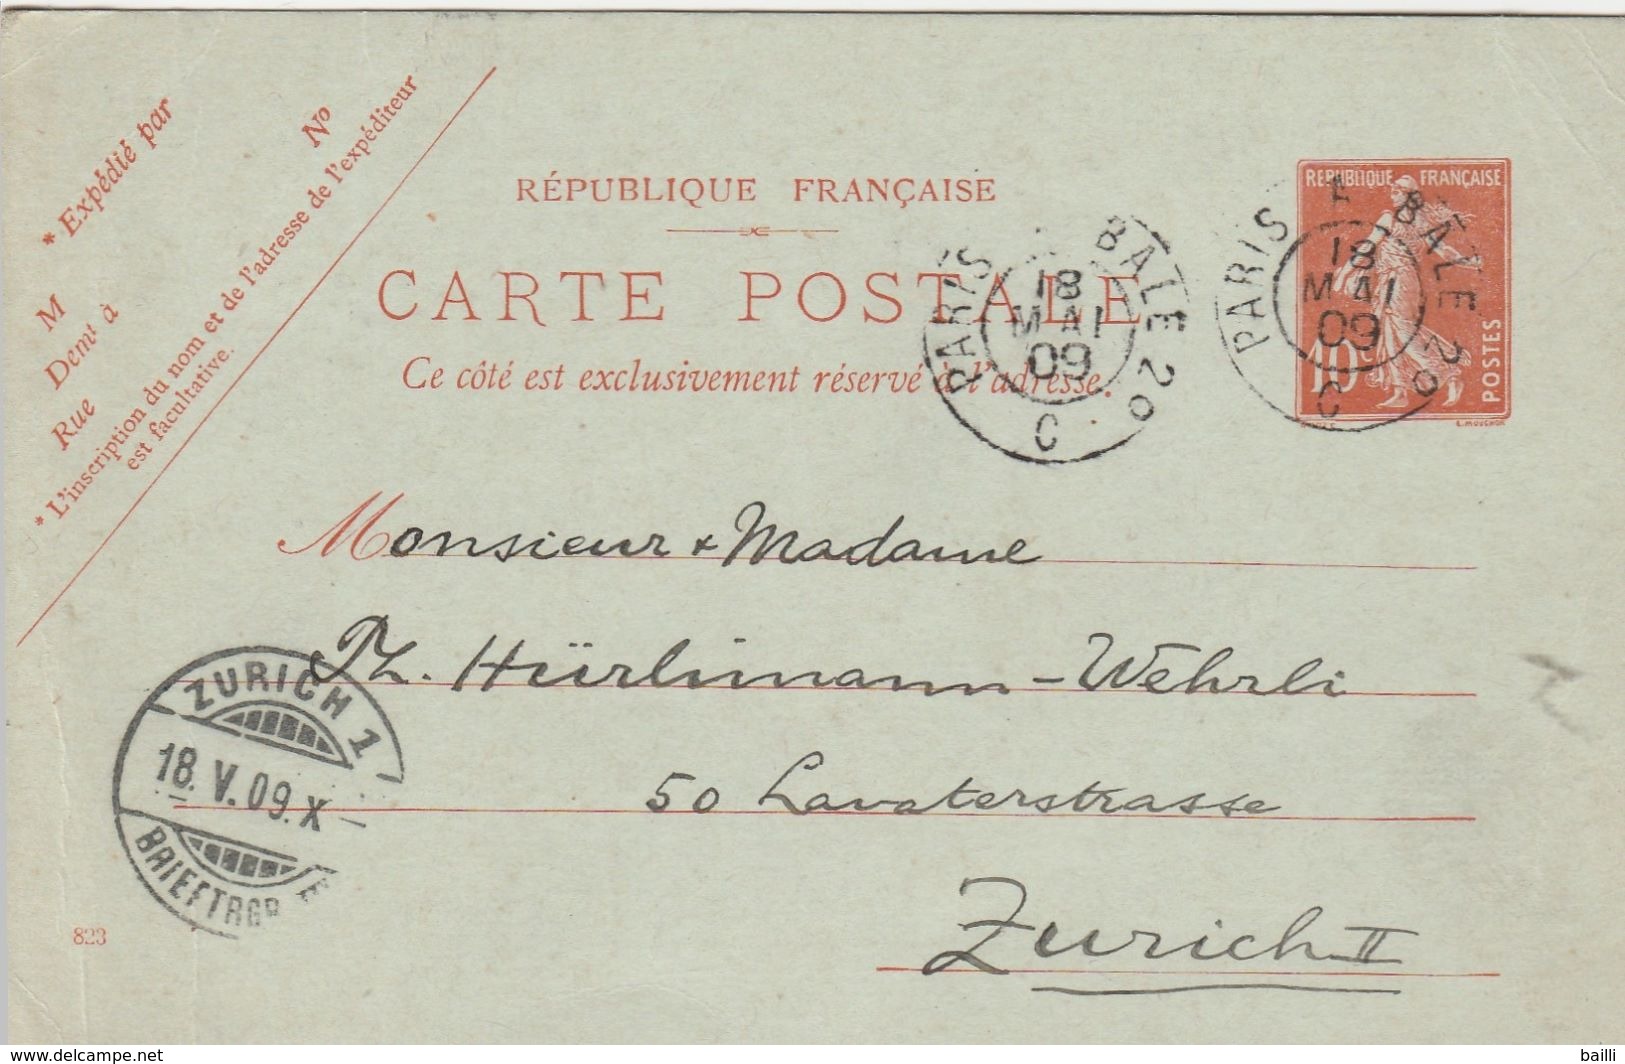 * Expédié par
M
Demt à
Rue
No
* L'inscription du nom et de l'adresse de l'expéditeur
est facultative.
RÉPUBLIQUE FRANÇAISE
CARTE POSTALE
Ce côté est exclusivement réservé à l'adresse.
PARIS BALE 2o
18
MAI
09
C
REPUBLIQUE FRANÇAISE
10 c
POSTES
L. MOUCHON
PARIS A BALE 2o
18
MAI
09
C
Monsieur & Madame
Ph. Hürlimann-Wehrli
50 Lavaterstrasse
Zurich II
ZURICH 1
18. V. 09. X
BRIEFTRG
823
www.delcampe.net
bailli